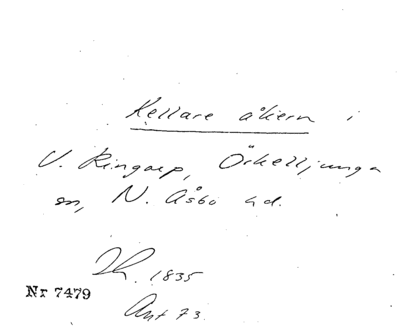 Kellare åkern i
V. Ringarp, Örkelljunga
sn, N. Åsbo hd.
1835
Nr 7479
Ant 73.